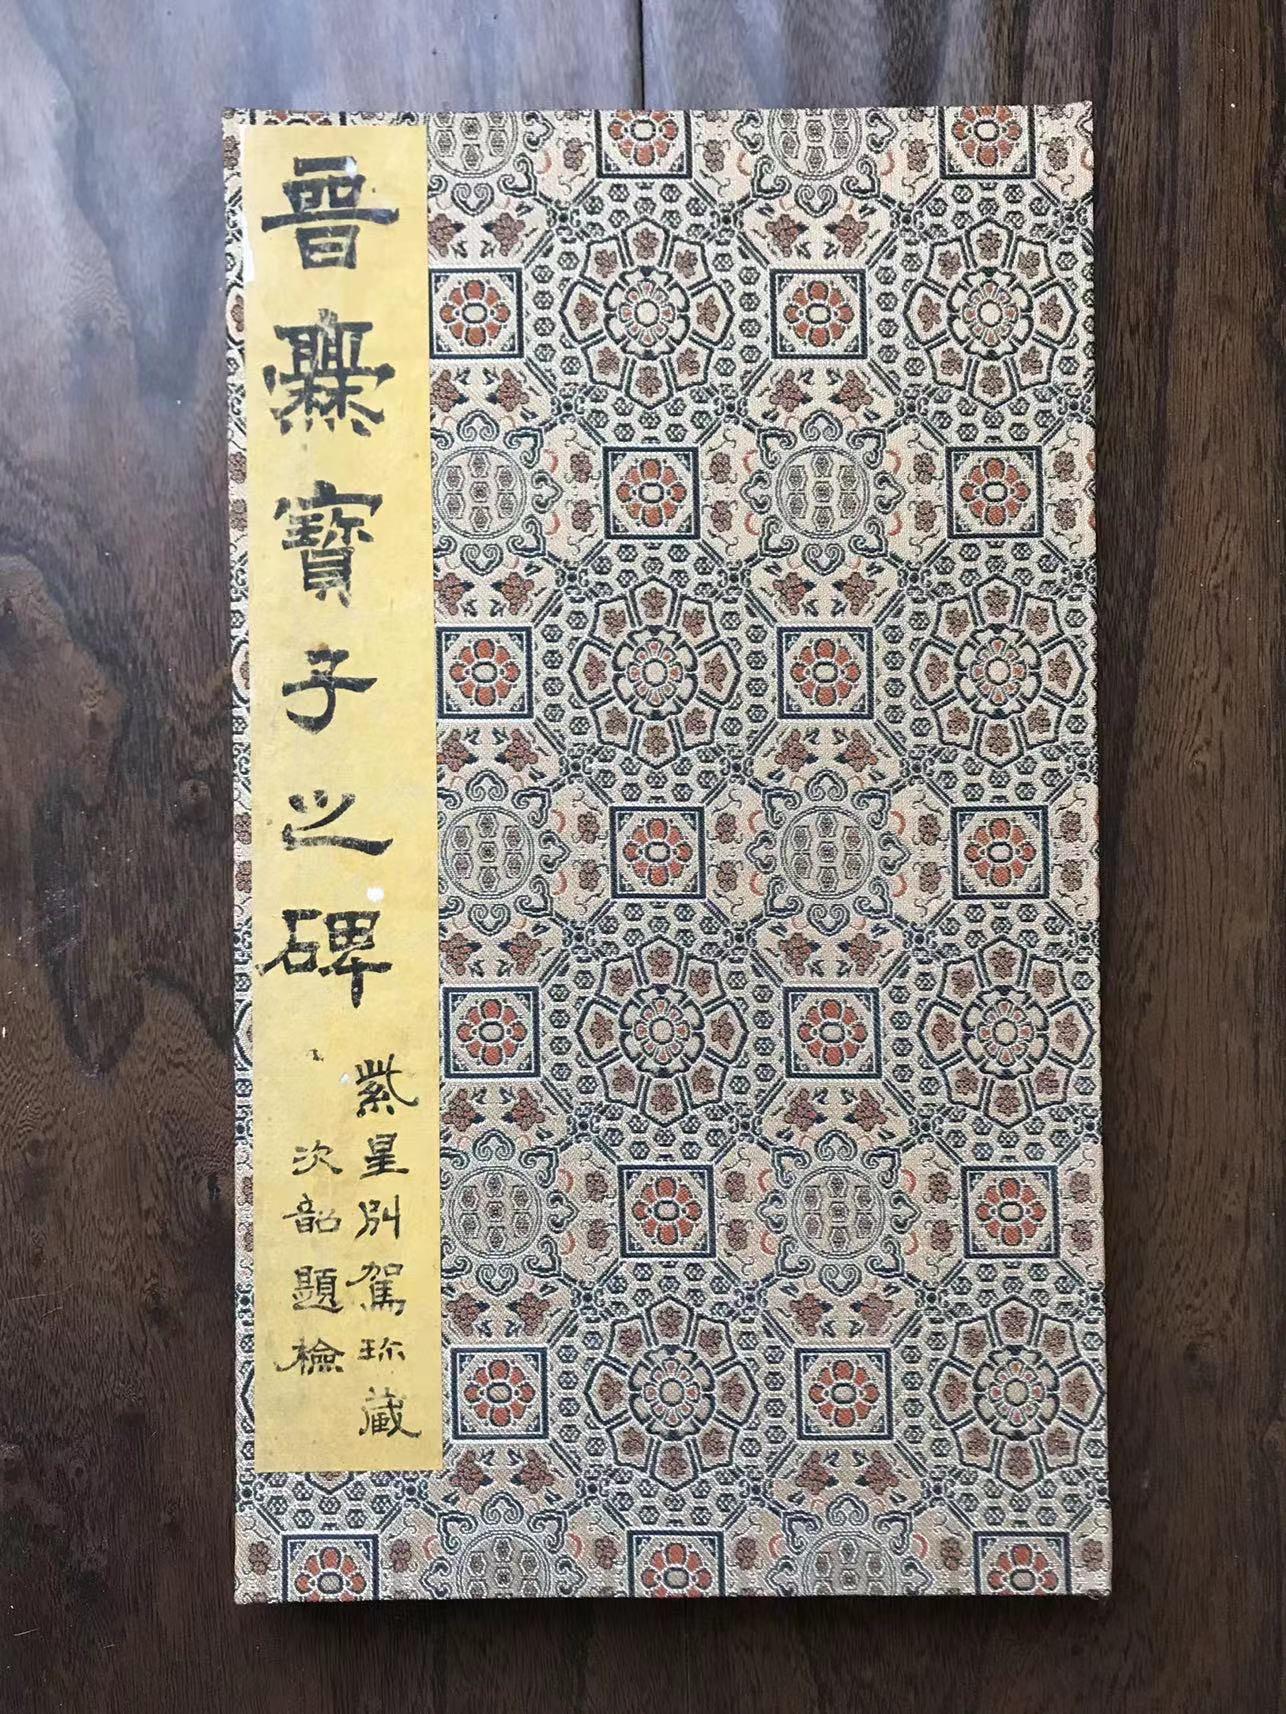 晉爨寶子之碑
紫星別駕珎藏
次韶題檢